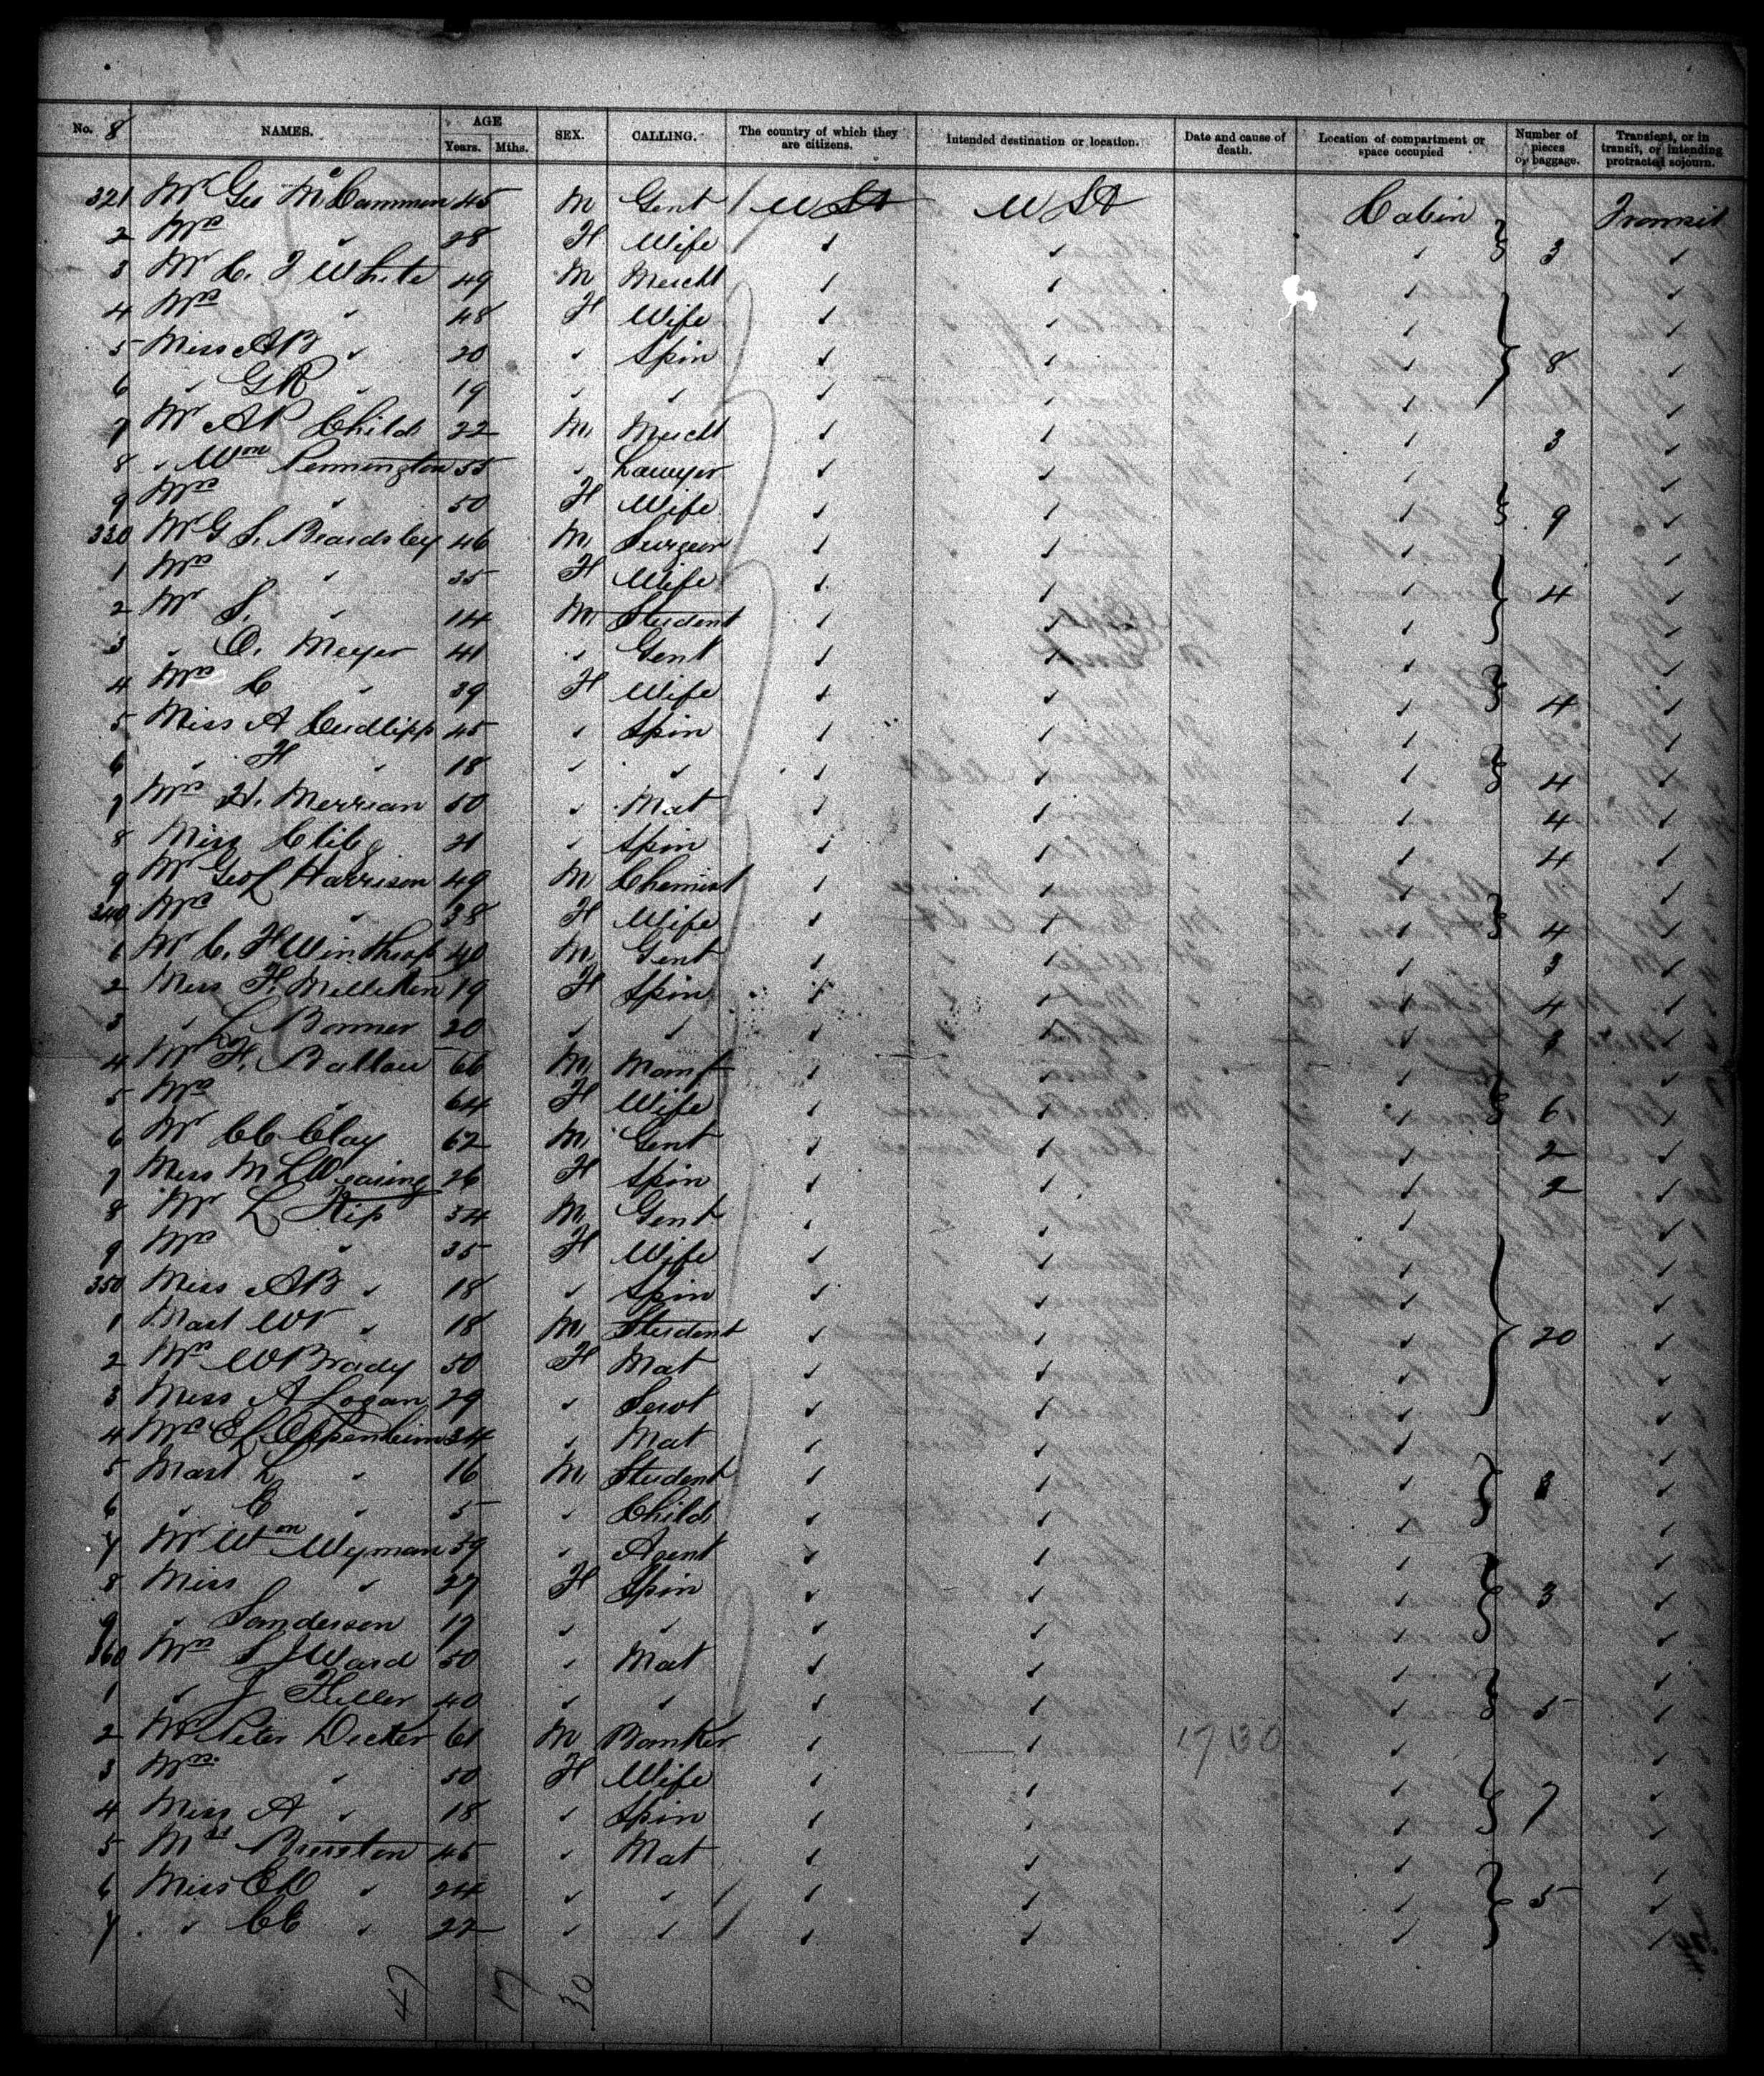 No. 8 NAMES. AGE Years. Mths. SEX. CALLING. The country of which they are citizens. Intended destination or location. Date and cause of death. Location of compartment or space occupied Number of pieces of baggage. Transient, or in transit, or intending protracted sojourn.
321 Mr Geo McCammon 45 M Gent U St U St Cabin Transit
2 Mrs " 28 F Wife " " " 3 "
3 Mr C. J White 49 M Mercht " " " "
4 Mrs " 48 F Wife " " " "
5 Miss AB " 20 " Spin " " " 8 "
6 " GR " 19 " " " " " "
7 Mr AP Childs 22 M Mercht " " " 3 "
8 " Wm Pennington 55 " Lawyer " " " "
9 Mrs " 50 F Wife " " " 9 "
330 Mr G S. Beardsley 46 M Surgeon " " " "
1 Mrs " 35 F Wife " " " 4 "
2 Mr S. " 14 M Student " " " "
3 " O. Meyer 41 " Gent " " " "
4 Mrs C " 39 F Wife " " " 4 "
5 Miss A Cudlipp 45 " Spin " " " "
6 " H " 18 " " " " " 4 "
7 Mrs H. Merrian 50 " Mat " " " 4 "
8 Miss 21 " Spin " " " 4 "
9 Mr Geo L Harrison 49 M Chemist " " " "
340 Mrs " 38 F Wife " " " 4 "
1 Mr C. F Winthrop 40 M Gent " " " 3 "
2 Miss F. Milliken 19 F Spin " " " 4 "
3 " L Bonner 20 " " " " " "
4 Mr F. Ballou 66 M Manf " " " "
5 Mrs " 64 F Wife " " " 6 "
6 Mr CC Clay 62 M Gent " " " 2 "
7 Miss M L Wearing 26 F Spin " " " 2 "
8 Mr L Kip 54 M Gent " " " "
9 Mrs " 35 F Wife " " " "
350 Miss AB " 18 " Spin " " " "
1 Mast WV " 18 M Student " " " 20 "
2 Mrs W Brady 50 F Mat " " " "
3 Miss A Logan 29 " Servt " " " "
4 Mrs EL Oppenheim 34 " Mat " " " "
5 Mast L " 16 M Student " " " "
6 " E " 5 " Child " " " "
7 Mr Wm Wyman 59 " Agent " " " "
8 Miss " 27 F Spin " " " 3 "
9 " Sanderson 17 " " " " " "
360 Mrs S J Ward 50 " Mat " " " "
1 " J Fuller 40 " " " " " 5 "
2 Mr Peter Decker 61 M Banker " " 17 30 " "
3 Mrs " 50 F Wife " " " "
4 Miss A " 18 " Spin " " " 7 "
5 Mrs Burston 45 " Mat " " " "
6 Miss " 24 " " " " " 5 "
7 " CE " 22 " " " " " "
47 17 30